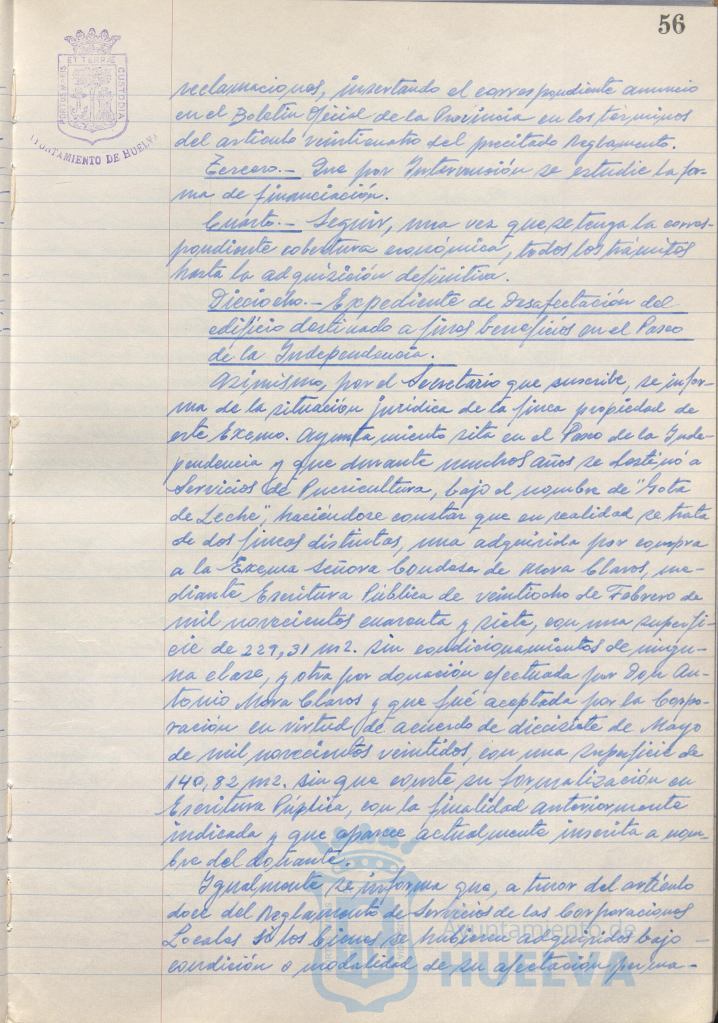 56
PORTUS MARIS
ET TERRAE
CUSTODIA
AYUNTAMIENTO DE HUELVA
reclamaciones, insertando el correspondiente anuncio
en el Boletín Oficial de la Provincia en los términos
del artículo veinticuatro del precitado Reglamento.
Tercero.- Que por Intervención se estudie la for-
ma de financiación.
Cuarto.- Seguir, una vez que se tenga la corres-
pondiente cobertura económica, todos los trámites
hasta la adquisición definitiva.
Dieciocho.- Expediente de Desafectación del
edificio destinado a fines beneficios en el Paseo
de la Independencia.
Asimismo, por el Secretario que suscribe, se infor-
ma de la situación jurídica de la finca propiedad de
este Excmo. Ayuntamiento sita en el Paseo de la Inde-
pendencia y que durante muchos años se destinó a
Servicios de Puericultura, bajo el nombre de "Gota
de Leche", haciéndose constar que en realidad se trata
de dos fincas distintas, una adquirida por compra
a la Excma Señora Condesa de Mora Claros, me-
diante Escritura Pública de veintiocho de Febrero de
mil novecientos cuarenta y siete, con una superfi-
cie de 229,31 m2. sin condicionamientos de ningu-
na clase, y otra por donación efectuada por Don An-
tonio Mora Claros y que fué aceptada por la Corpo-
ración en virtud de acuerdo de diecisiete de Mayo
de mil novecientos veintidos, con una superficie de
140,82 m2. sin que conste su formalización en
Escritura Pública, con la finalidad anteriormente
indicada y que aparece actualmente inscrita a nom-
bre del donante.
Igualmente se informa que, a tenor del artículo
doce del Reglamento de Servicios de las Corporaciones
Locales si los bienes se hubieran adquirido bajo
condición o modalidad de su afectación perma-
Ayuntamiento de
HUELVA